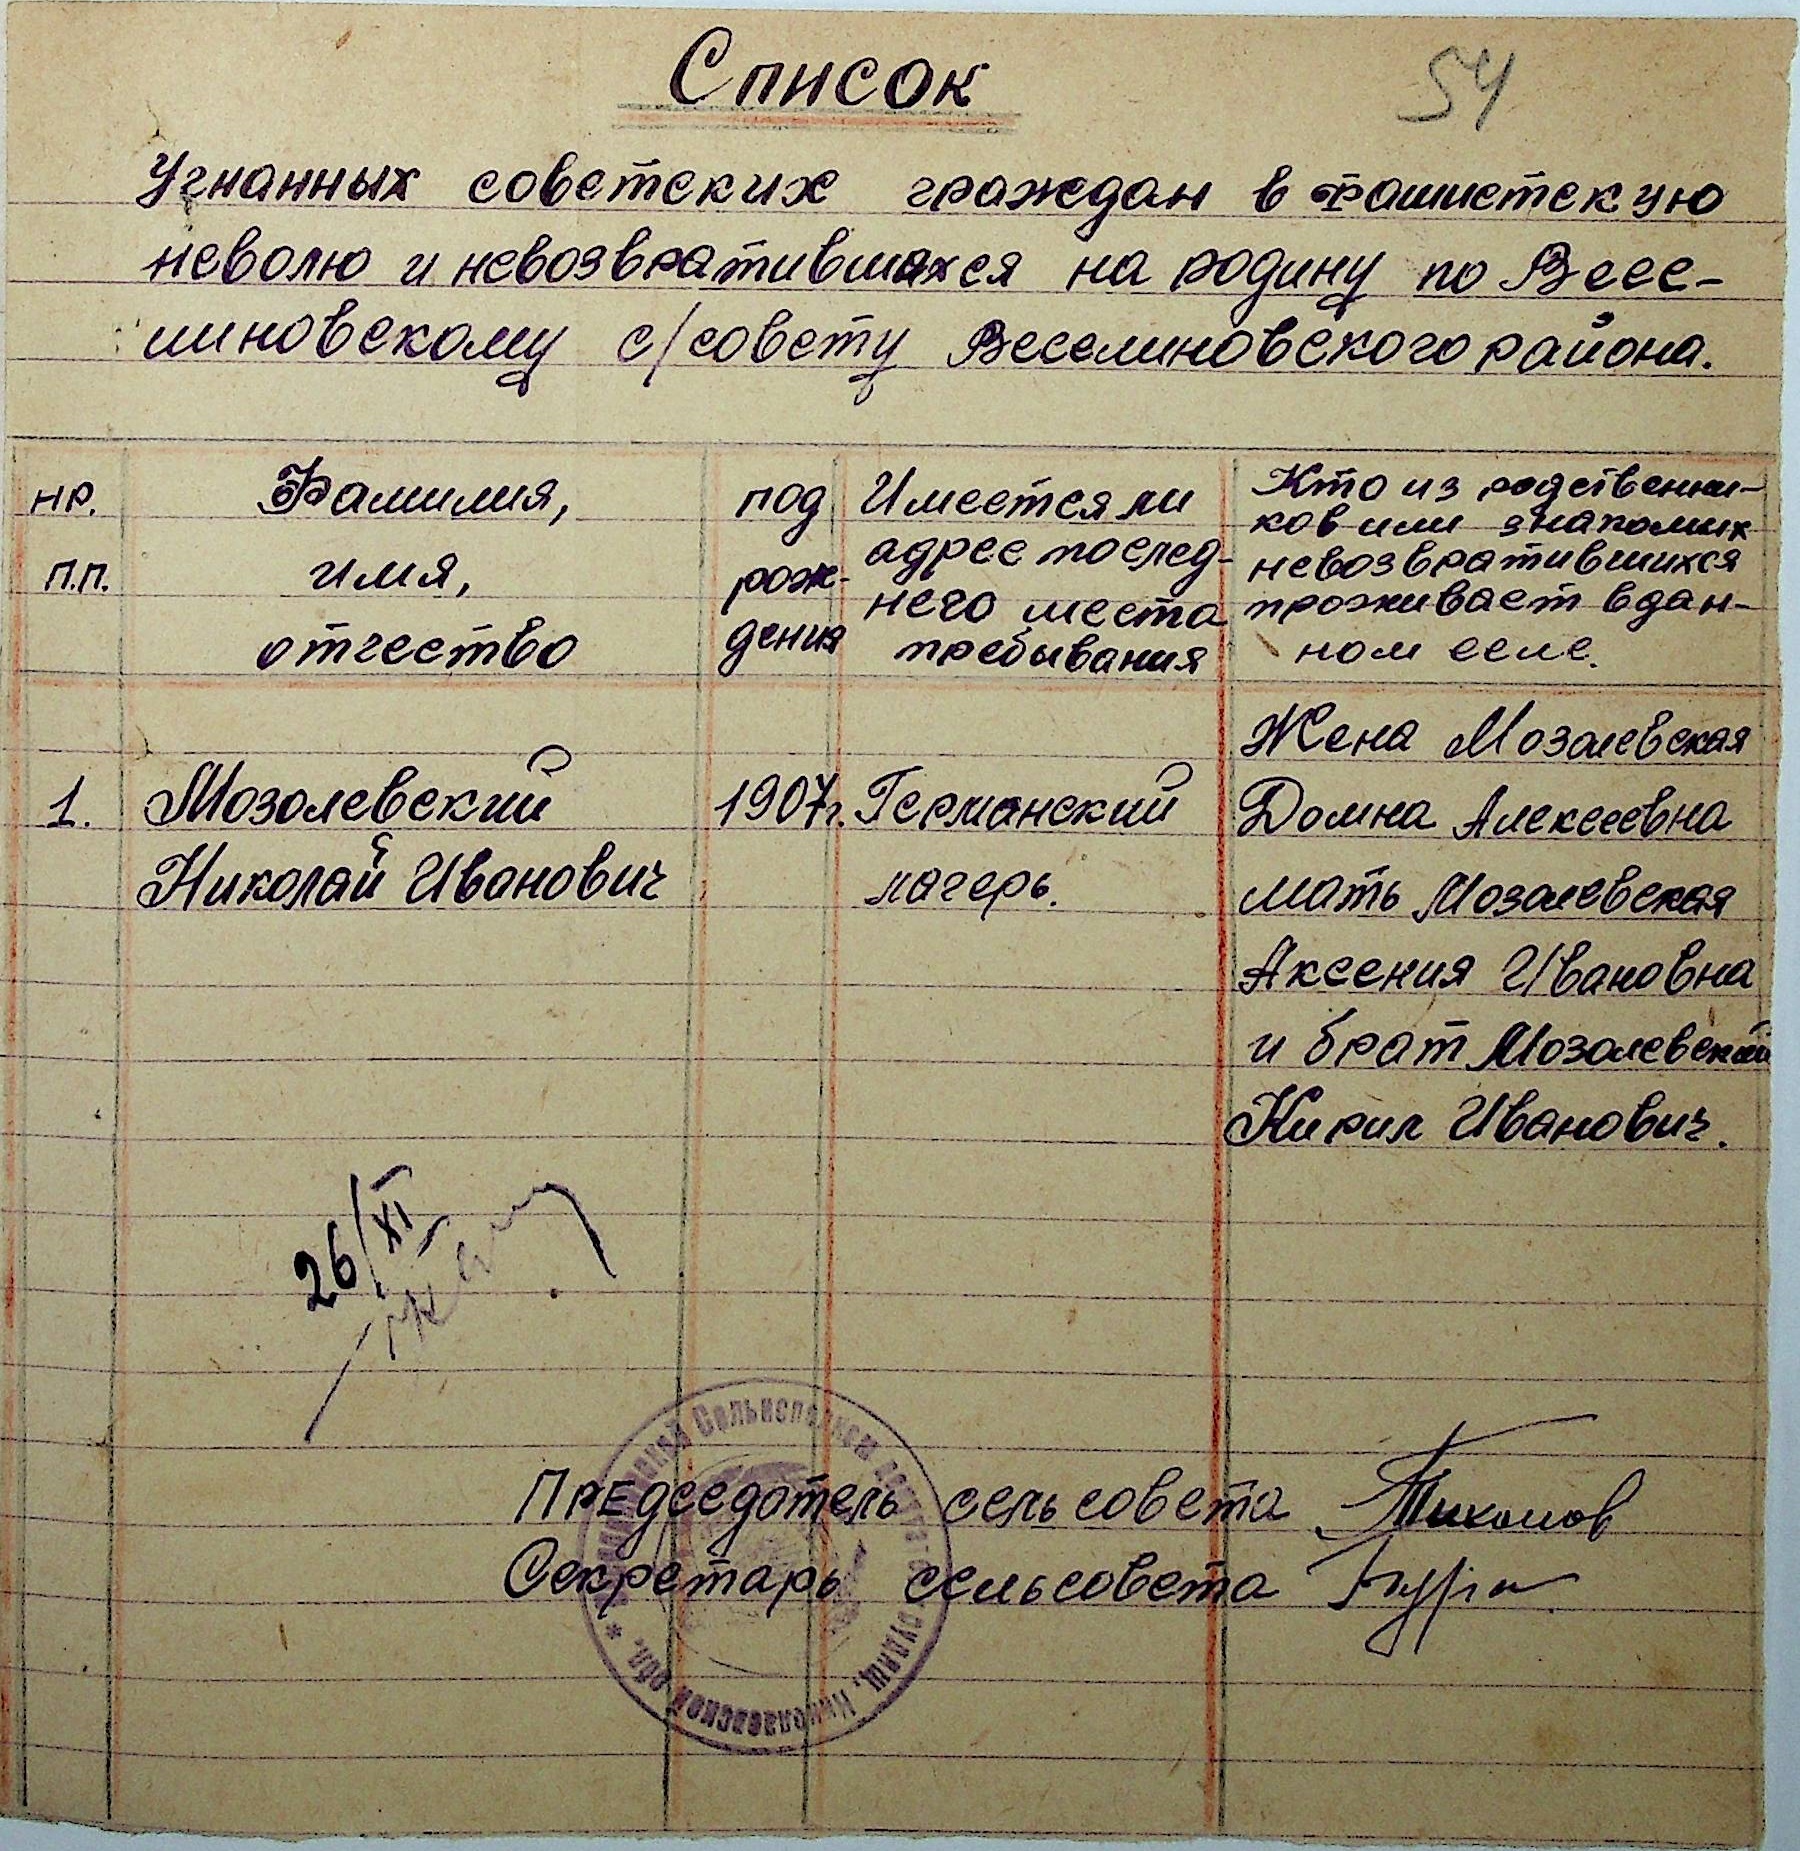 54
Список
Угнанных советских граждан в фашистскую
неволю и невозвратившихся на родину по Весе-
линовскому с/совету Веселиновского района.
нр.
п.п.
Фамилия,
имя,
отчество
год
рож-
дения
Имеется ли
адрес послед-
него места
пребывания
Кто из родственни-
ков или знакомых
невозвратившихся
проживает в дан-
ном селе.
1.
Мозолевский
Николай Иванович
1907г.
Германский
лагерь.
Жена Мозолевская
Домна Алексеевна
мать Мозолевская
Аксения Ивановна
и брат Мозолевский
Кирил Иванович.
26/XI
Председатель сельсовета
Секретарь сельсовета
Сельисполком Николаевской обл. *